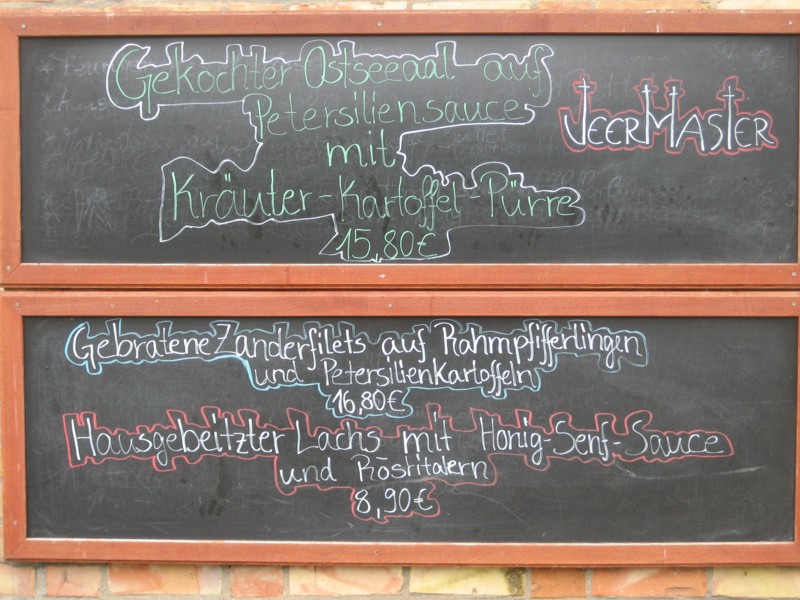 Gekochter Ostseeaal auf
Petersiliensauce
mit
Kräuter-Kartoffel-Pürre
15,80€
VEERMASTER
Gebratene Zanderfilets auf Rahmpfifferlingen
und Petersilienkartoffeln
16,80€
Hausgebeitzter Lachs mit Honig-Senf-Sauce
und Röstitalern
8,90€